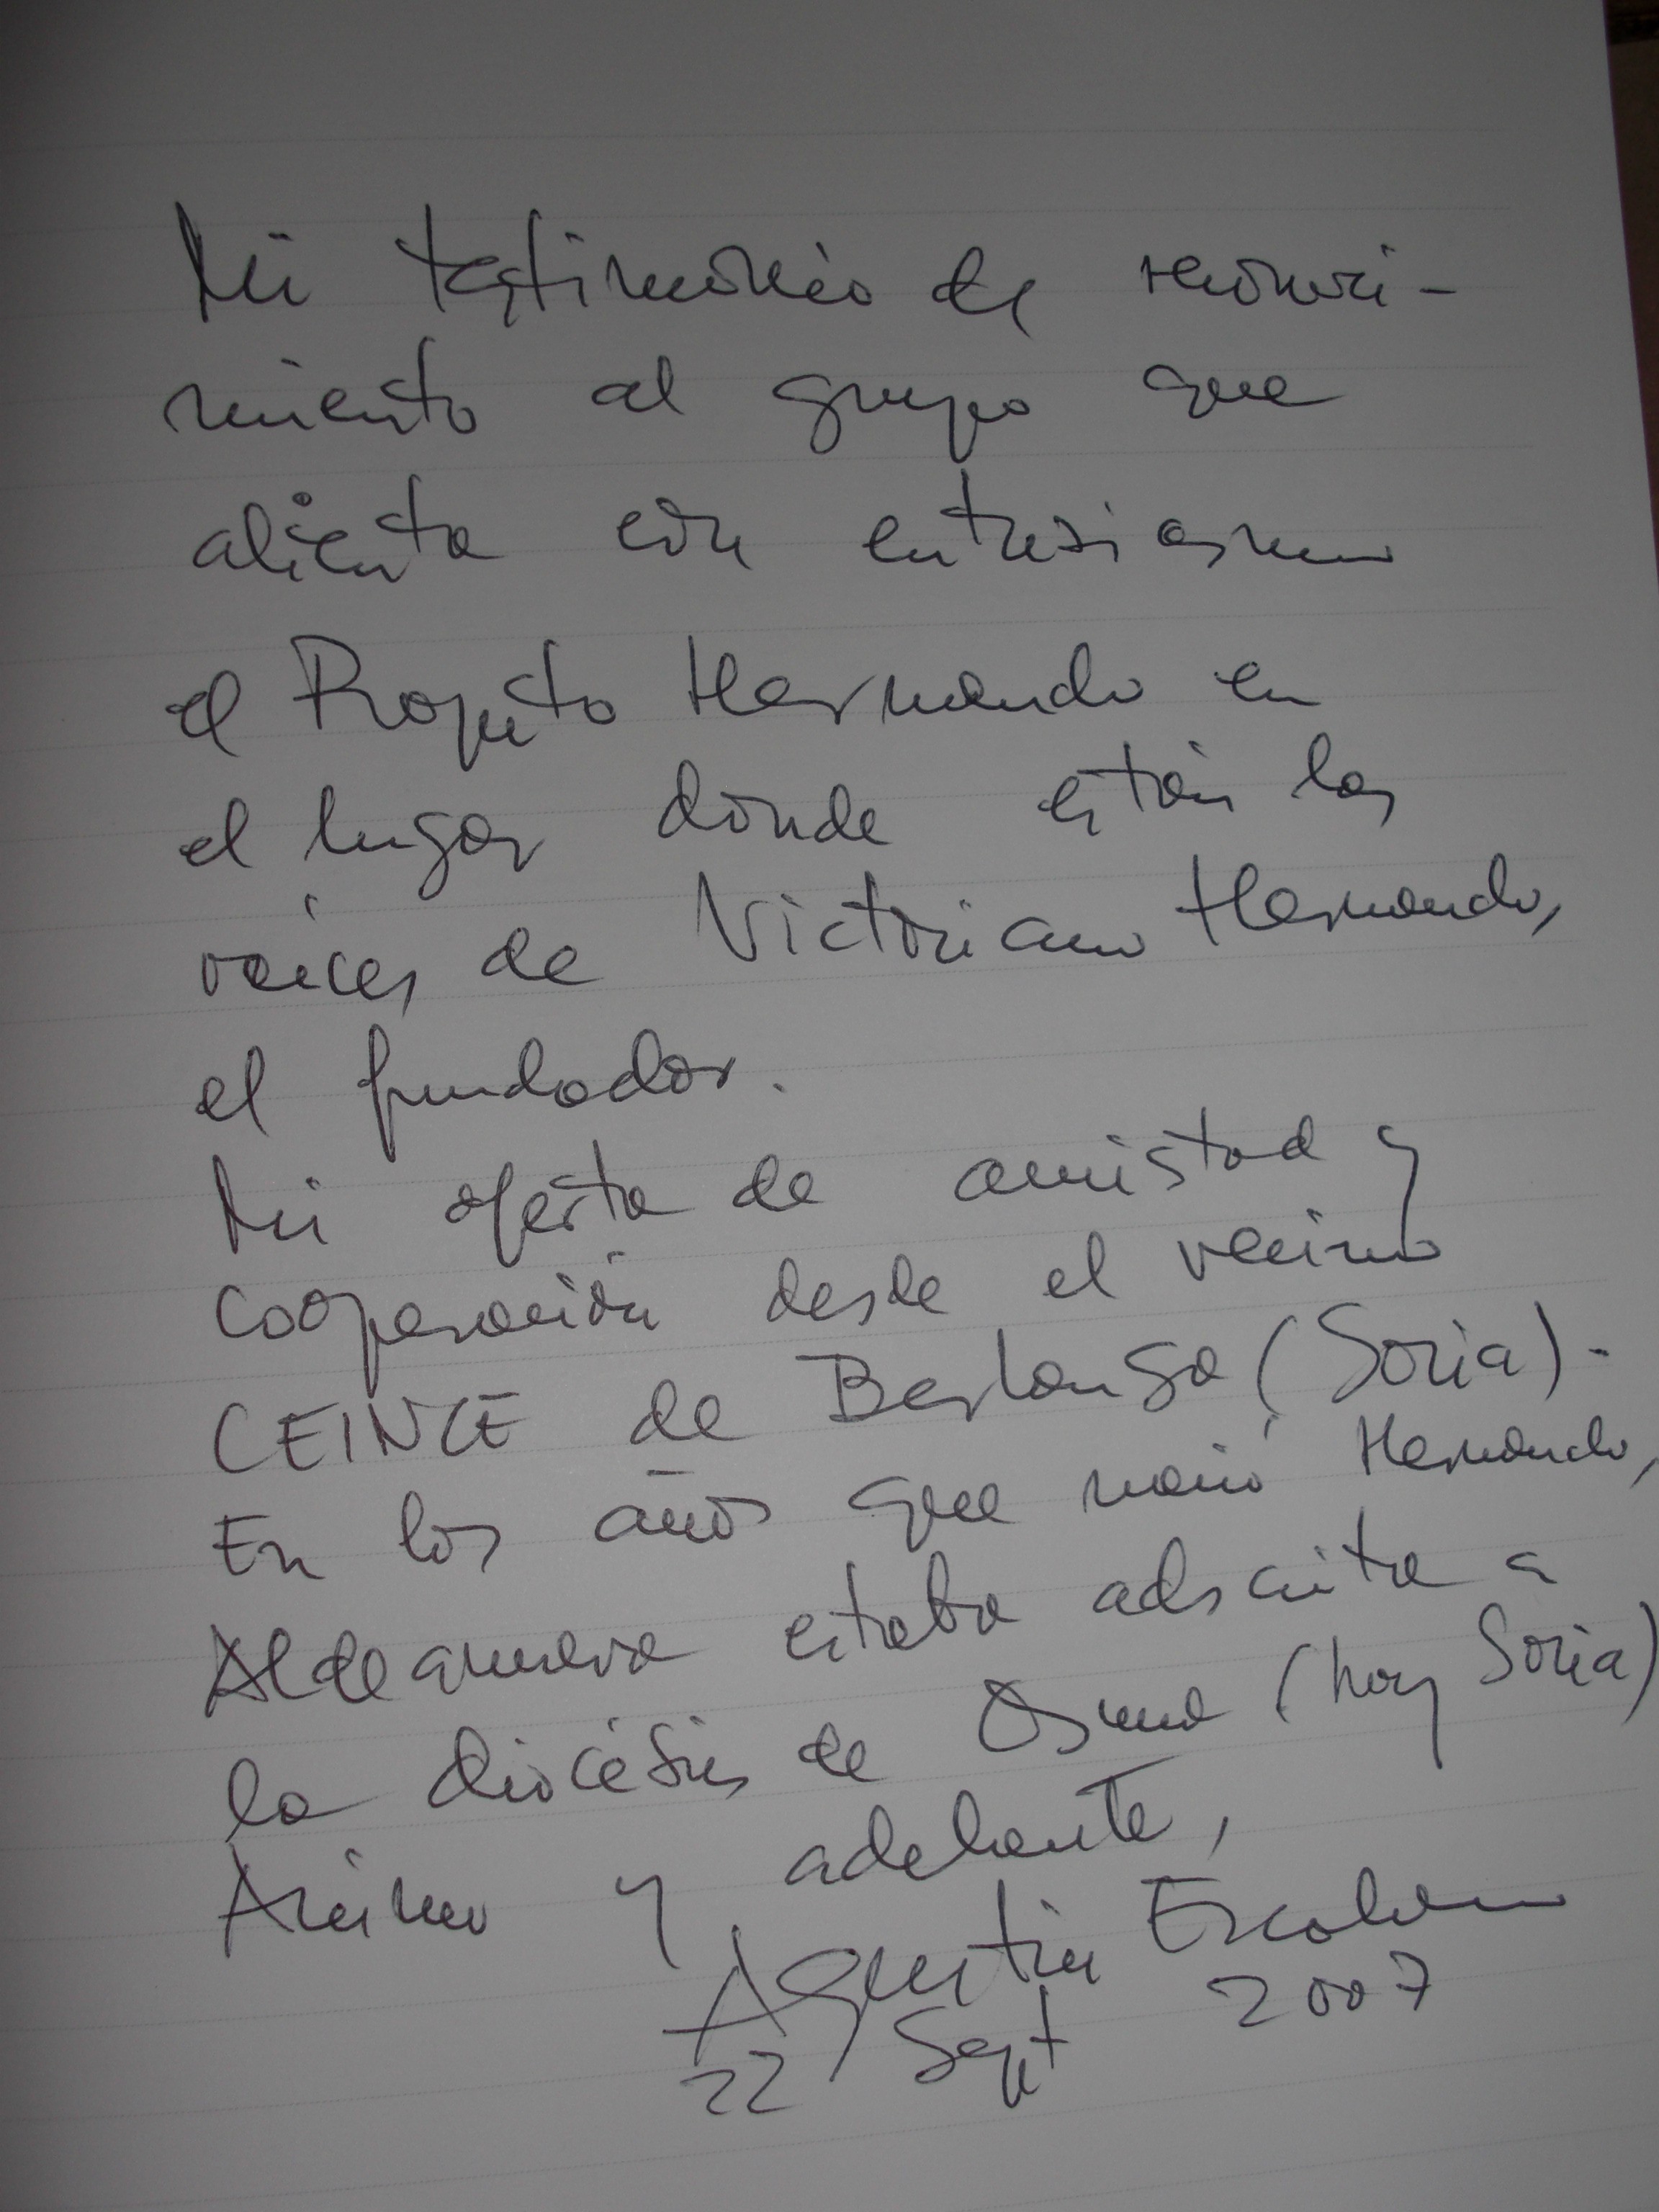 Mi testimonio de reconoci-
miento al grupo que
alienta con entusiasmo
el Proyecto Hernando en
el lugar donde están las
raíces de Victoriano Hernando,
el fundador.
Mi oferta de amistad y
cooperación desde el vecino
CEINCE de Berlanga (Soria).
En los años que nació Hernando,
Aldeanueva estaba adscrita a
la diócesis de Osma (hoy Soria)
Animo y adelante,
Agustín Escolano
22 Sept 2007